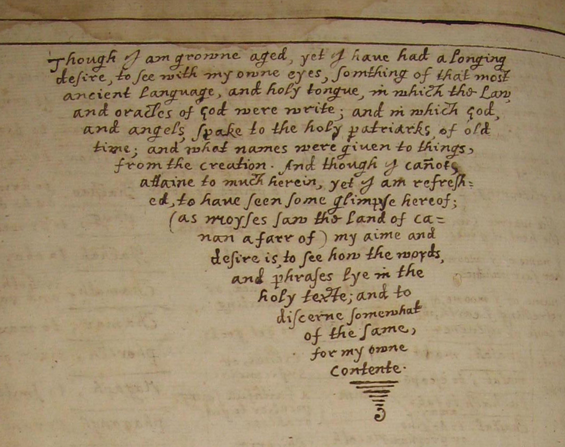 Though I am growne aged, yet I have had a longing
desire, to see with my owne eyes, somthing of that most
ancient language, and holy tongue, in which the Law,
and oracles of God were write; and in which God,
and angels, spake to the holy patriarks, of old
time; and what names were given to things,
from the creation. And though I cañot
attaine to much herein, yet I am refresh=
ed, to have seen some glimpse hereof;
(as moyses saw the Land of ca=
nan afarr of) my aime and
desire is, to see how the words,
and phrases lye in the
holy texte; and to
discerne somewhat
of the same,
for my owne
contente.